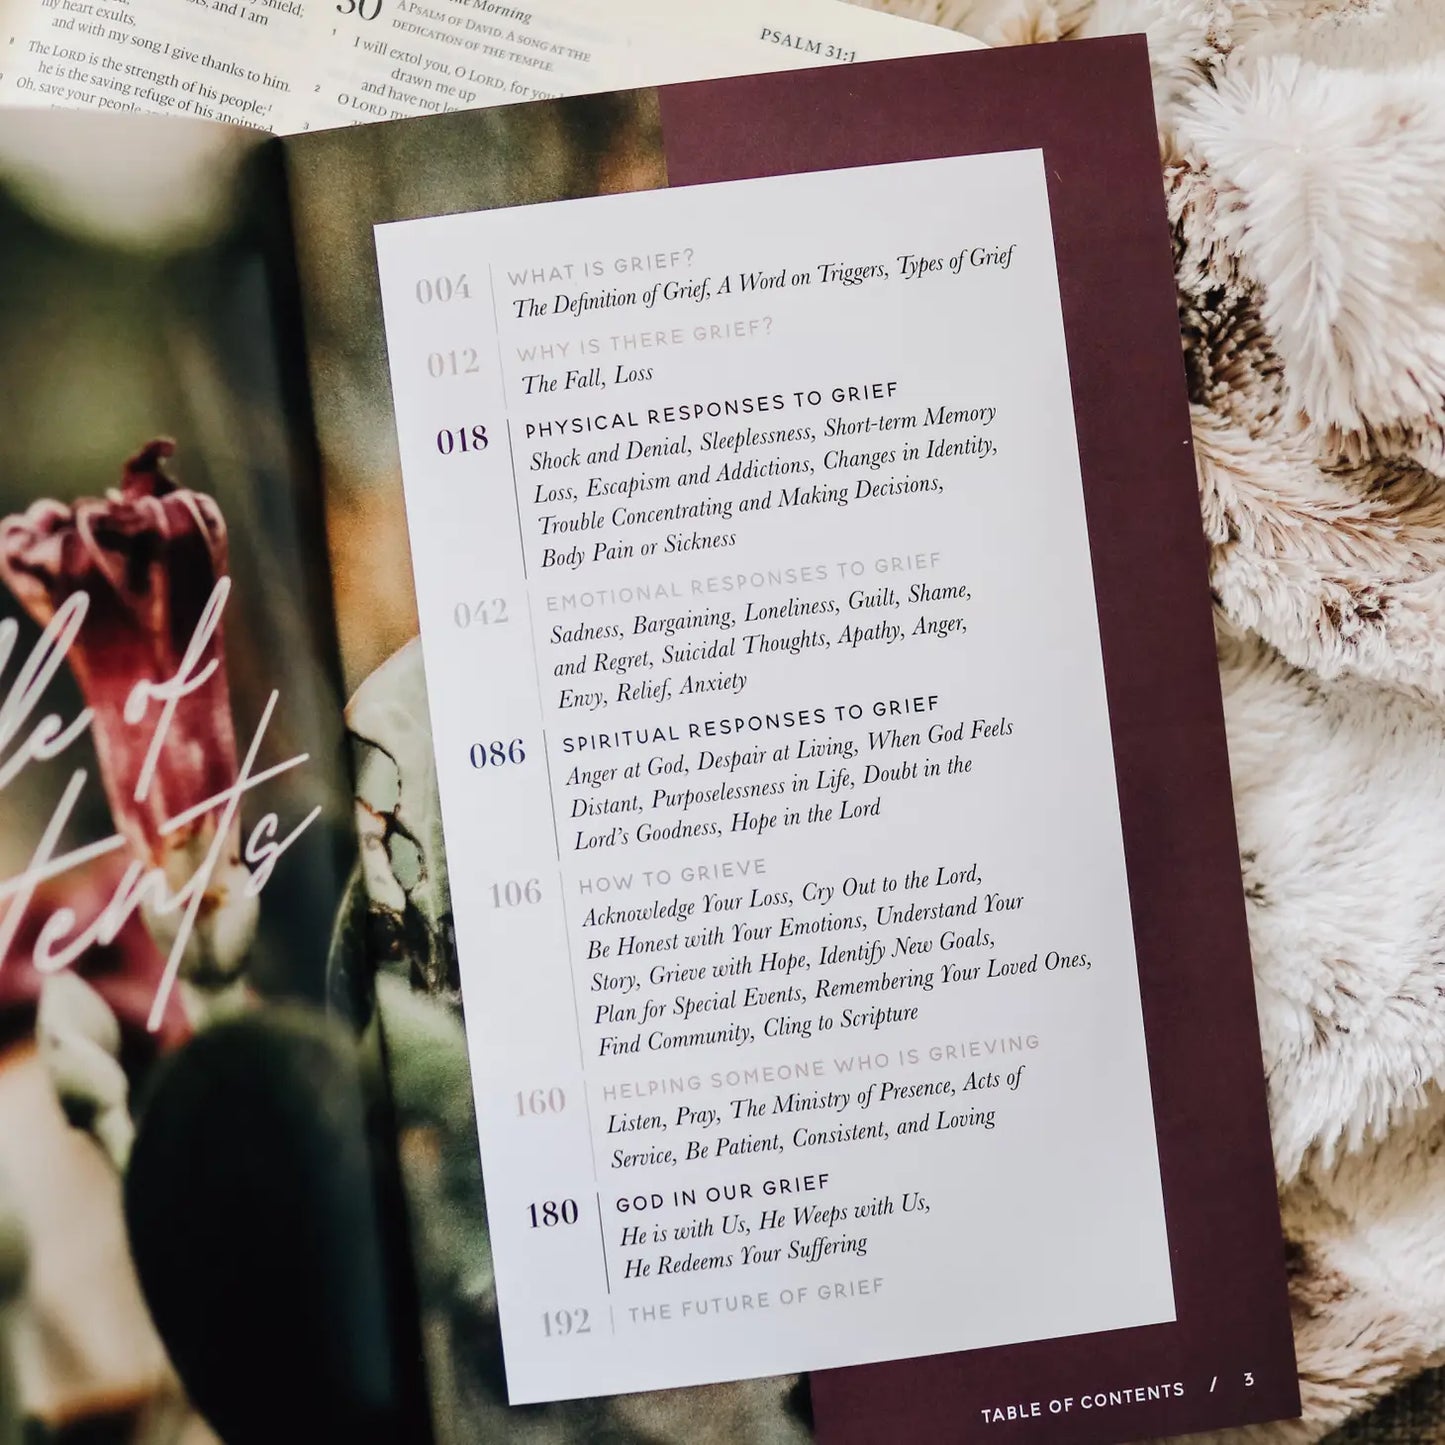 my heart exults,
and with my song I give thanks to him.
8 The LORD is the strength of his people;
he is the saving refuge of his anointed
Oh, save your people
shield;
and I am
30
Morning
A PSALM OF DAVID. A SONG AT THE
DEDICATION OF THE TEMPLE.
1 I will extol you, O LORD, for you
drawn me up
and have not
2 O LORD
3
PSALM 31:1
of
004 WHAT IS GRIEF?
The Definition of Grief, A Word on Triggers, Types of Grief
012 WHY IS THERE GRIEF?
The Fall, Loss
018 PHYSICAL RESPONSES TO GRIEF
Shock and Denial, Sleeplessness, Short-term Memory
Loss, Escapism and Addictions, Changes in Identity,
Trouble Concentrating and Making Decisions,
Body Pain or Sickness
042 EMOTIONAL RESPONSES TO GRIEF
Sadness, Bargaining, Loneliness, Guilt, Shame,
and Regret, Suicidal Thoughts, Apathy, Anger,
Envy, Relief, Anxiety
086 SPIRITUAL RESPONSES TO GRIEF
Anger at God, Despair at Living, When God Feels
Distant, Purposelessness in Life, Doubt in the
Lord's Goodness, Hope in the Lord
106 HOW TO GRIEVE
Acknowledge Your Loss, Cry Out to the Lord,
Be Honest with Your Emotions, Understand Your
Story, Grieve with Hope, Identify New Goals,
Plan for Special Events, Remembering Your Loved Ones,
Find Community, Cling to Scripture
160 HELPING SOMEONE WHO IS GRIEVING
Listen, Pray, The Ministry of Presence, Acts of
Service, Be Patient, Consistent, and Loving
180 GOD IN OUR GRIEF
He is with Us, He Weeps with Us,
He Redeems Your Suffering
192 THE FUTURE OF GRIEF
TABLE OF CONTENTS / 3